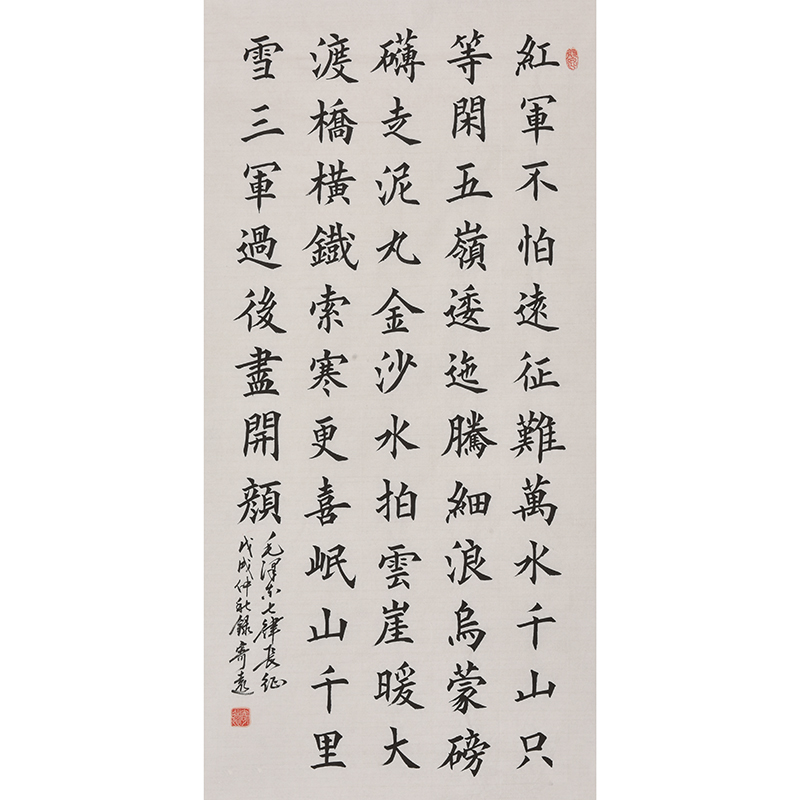 紅軍不怕遠征難萬水千山只
等閑五嶺逶迤騰細浪烏蒙磅
礴走泥丸金沙水拍雲崖暖大
渡橋橫鐵索寒更喜岷山千里
雪三軍過後盡開顏
毛澤東七律長征
戊戌仲秋錄寄遠